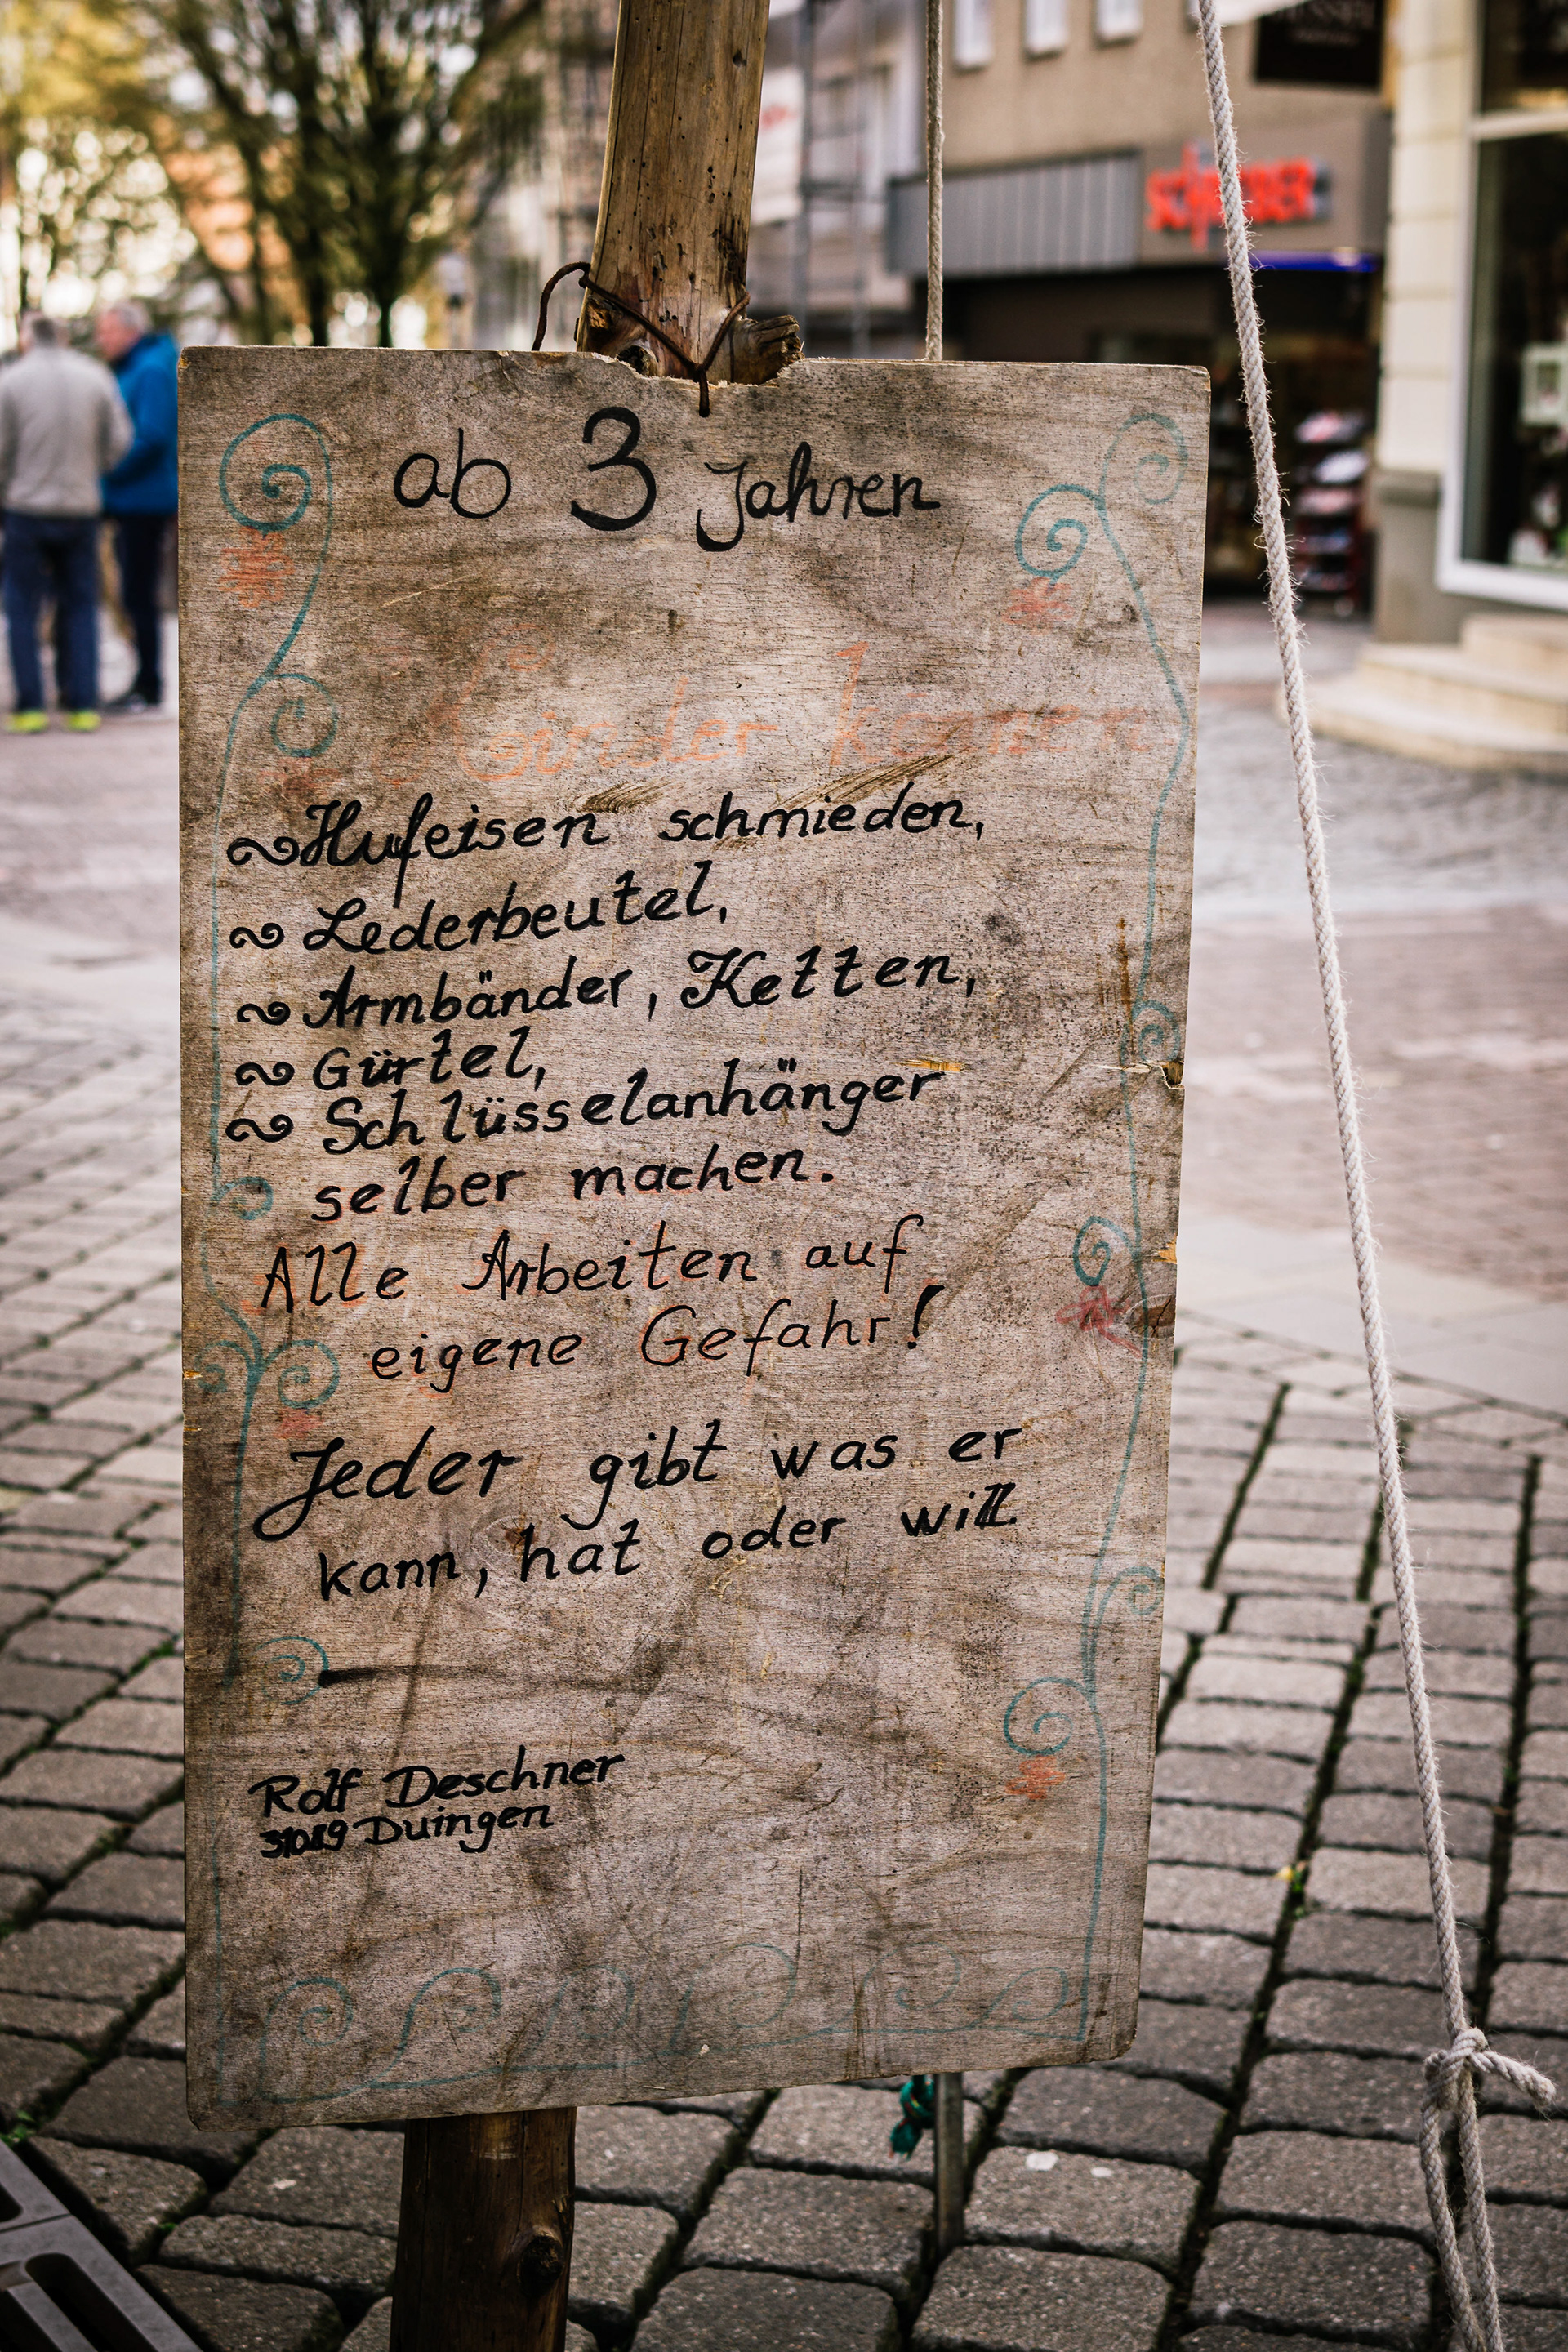 ab 3 Jahren
Kinder können
Hufeisen schmieden,
Lederbeutel,
Armbänder, Ketten,
Gürtel,
Schlüsselanhänger
selber machen.
Alle Arbeiten auf
eigene Gefahr!
Jeder gibt was er
kann, hat oder will.
Rolf Deschner
31089 Duingen